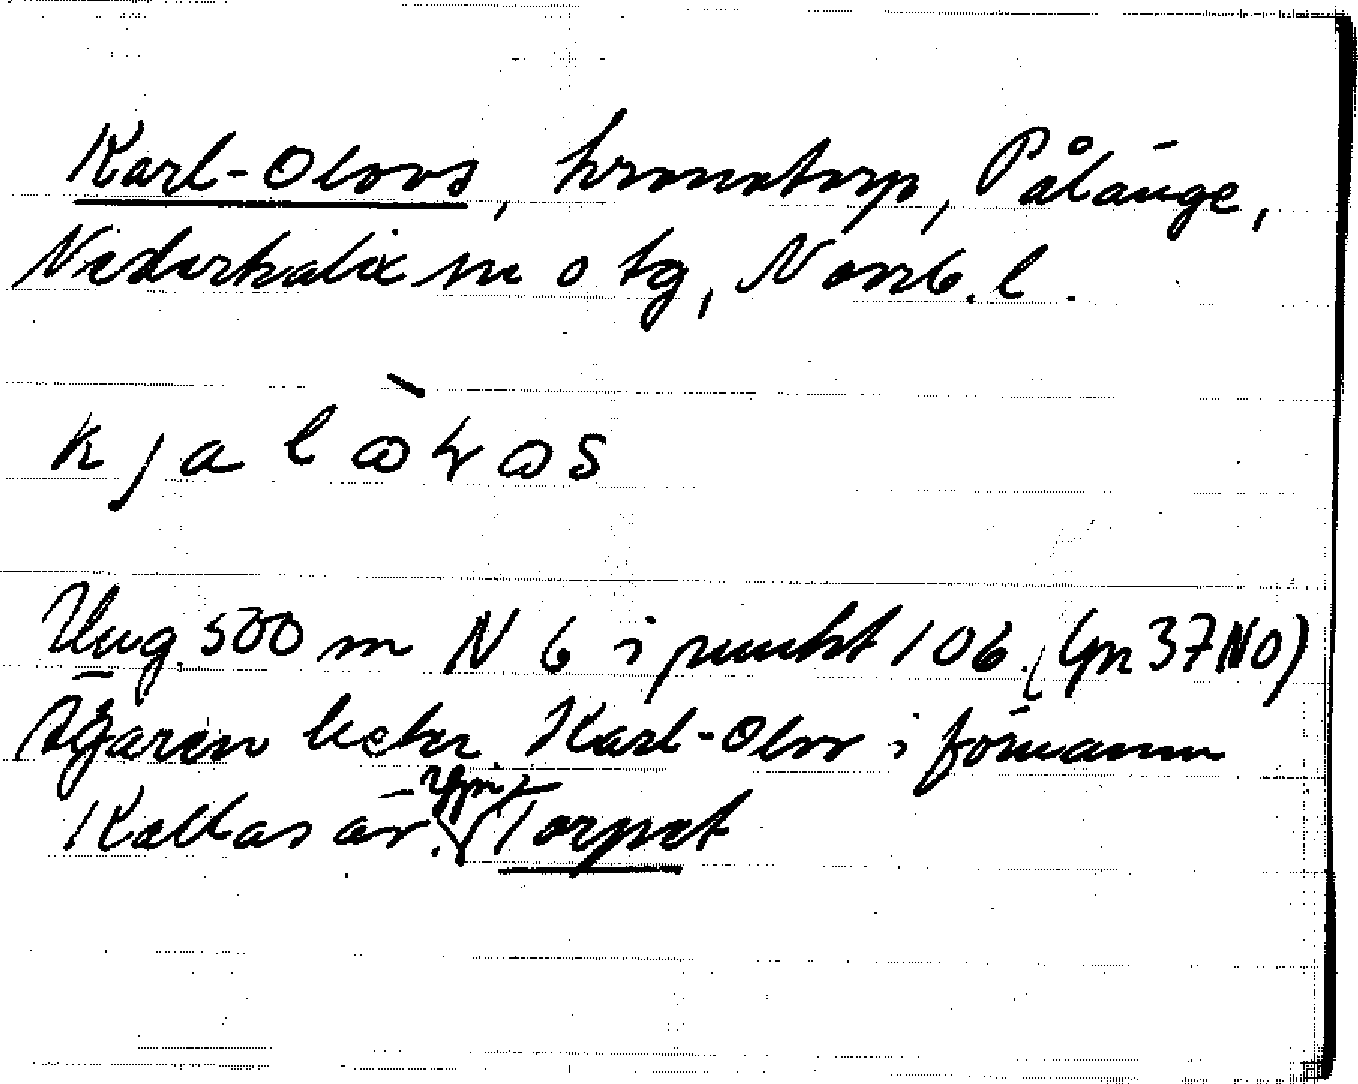 Karl-Olovs, kronotorp, Pålänge,
Nederkalix sn o tg, Norrb. l.
k j a l ɷ̀ v ɷ s
Ung. 500 m N 6 i punkt 106. (Gn 37 NO)
Ägaren heter Karl-Olov i förnamn
Kallas äv. Torpet